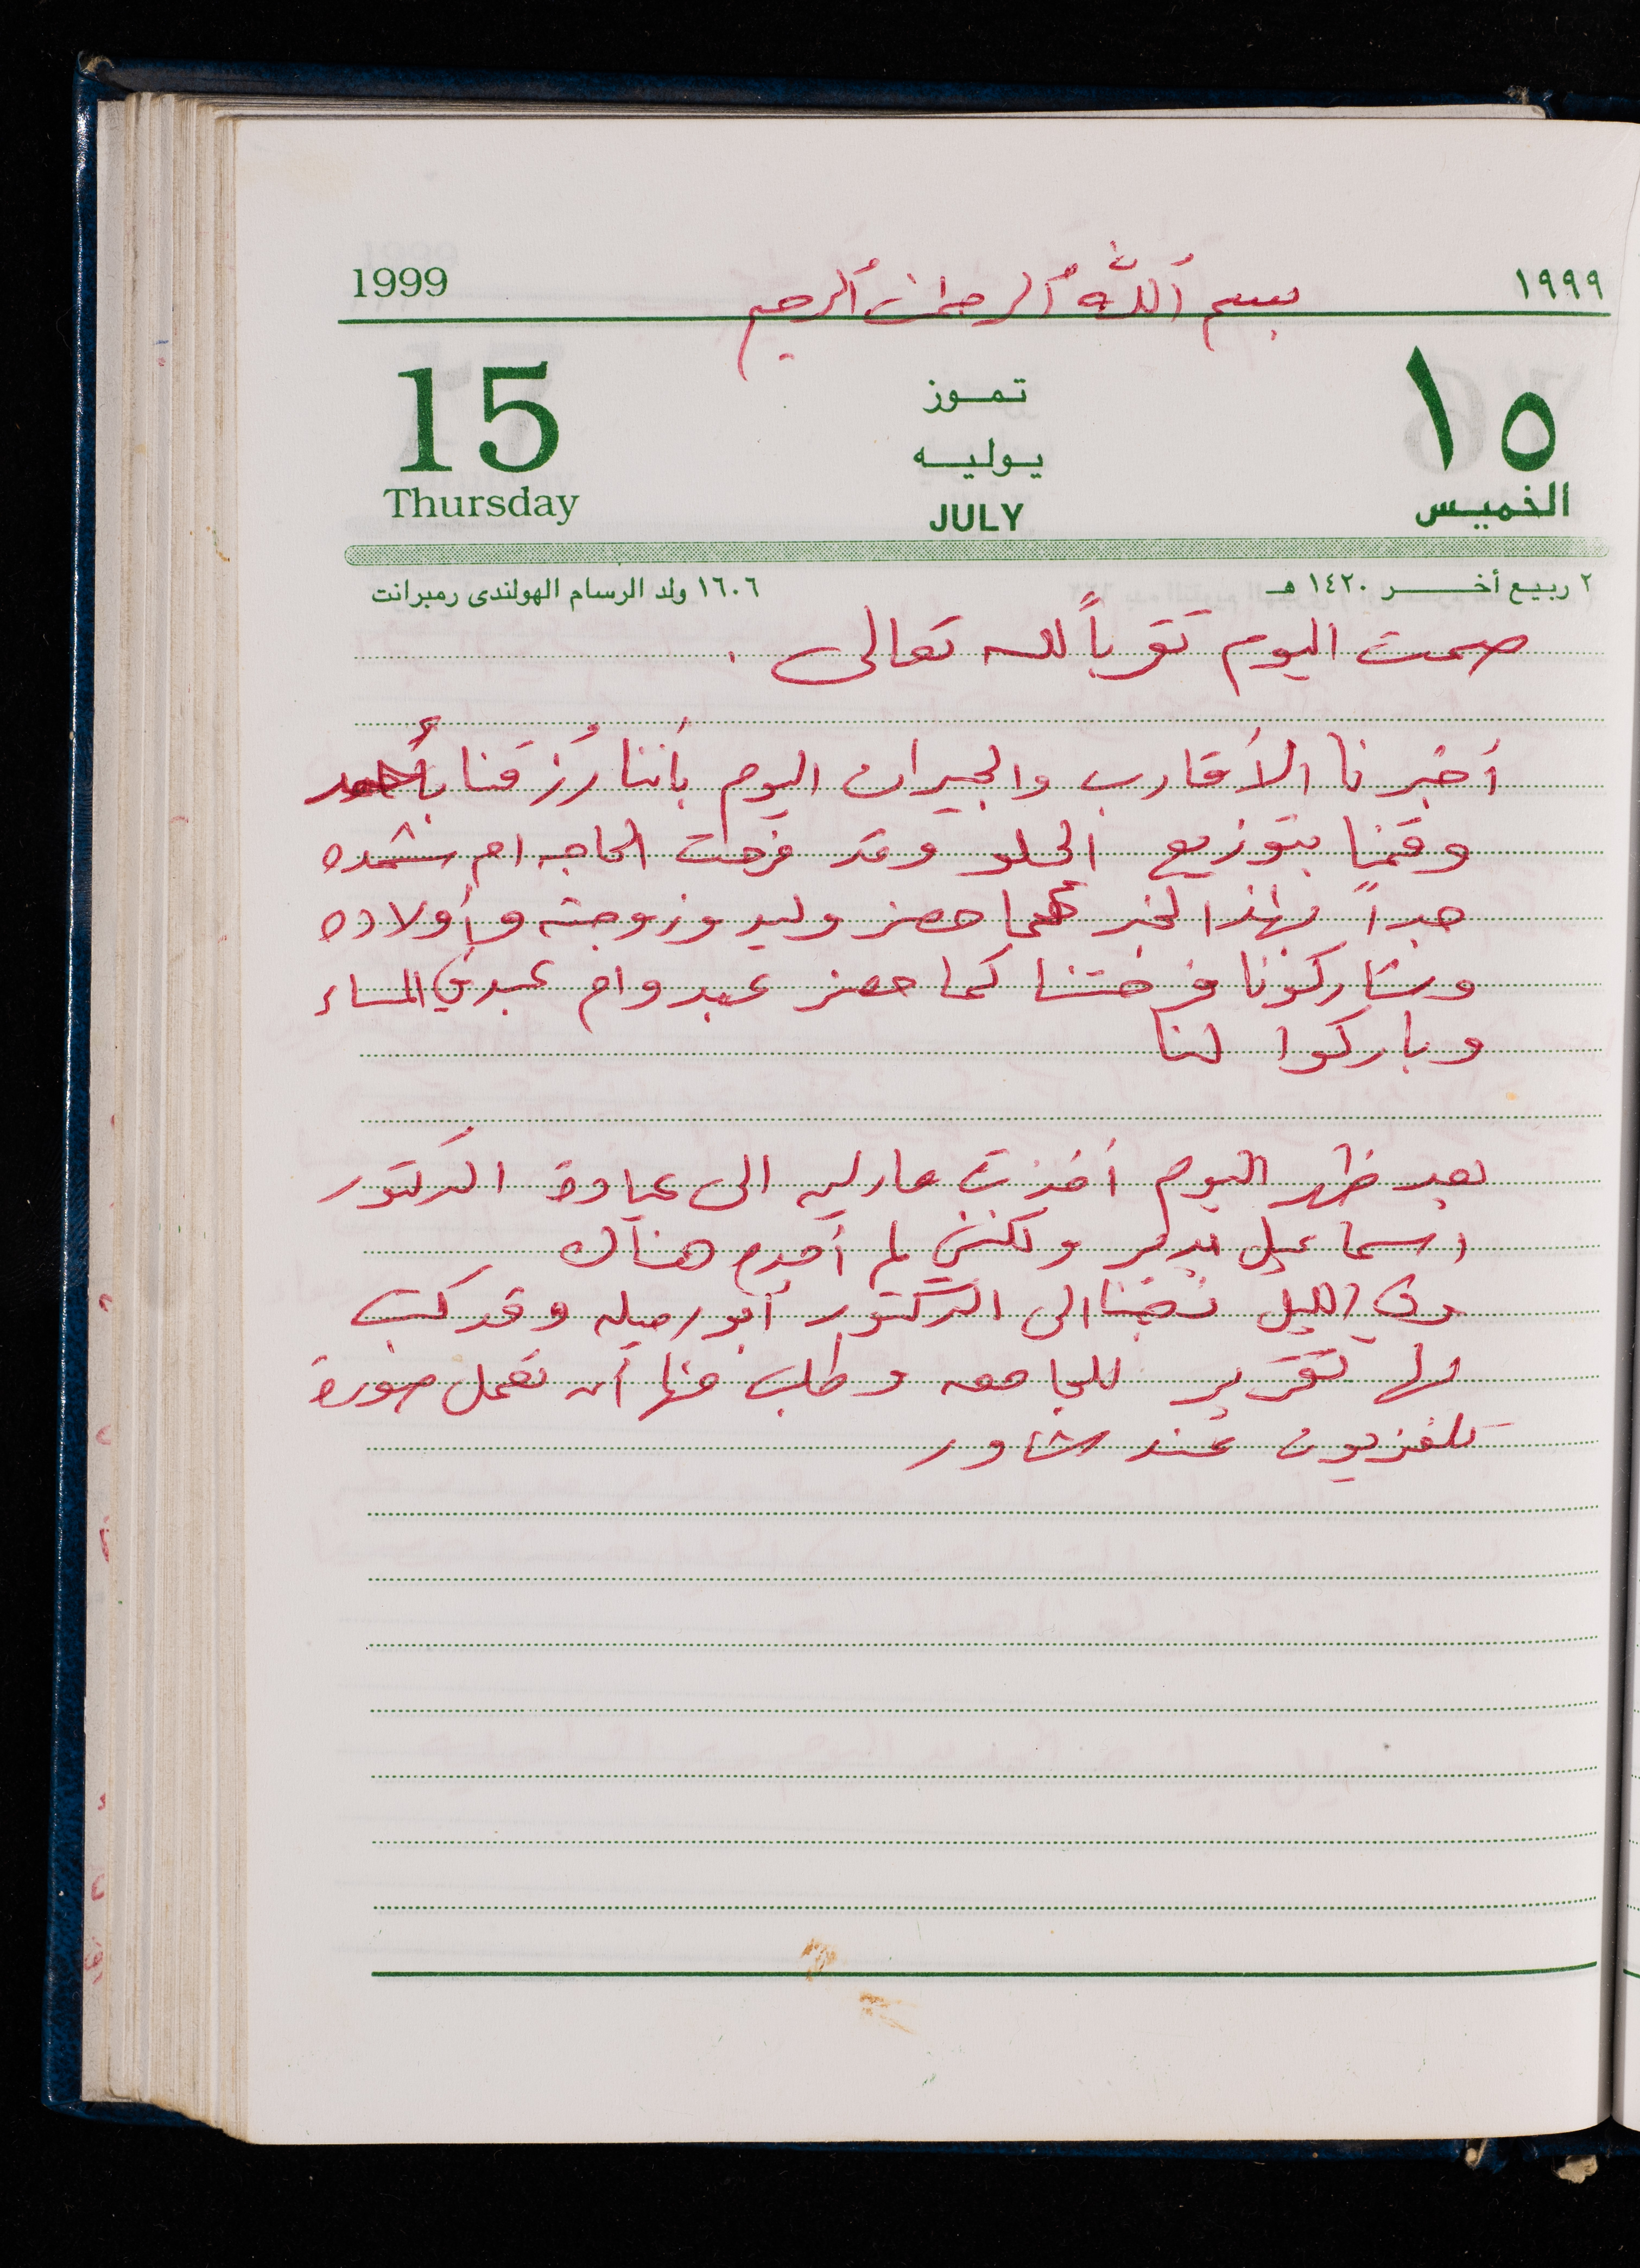 1999 بسم الله الرحمن الرحيم ١٩٩٩
15 تموز ١٥
يوليه
Thursday JULY الخميس
٢ ربيع أخر ١٤٢٠ هـ ١٦٠٦ ولد الرسام الهولندى رمبرانت
صمت اليوم تقرباً لله تعالى .
أخبرنا الأقارب والجيران اليوم بأننا رُزقنا بأحمد
وقمنا بتوزيع الحلو وقد فرحت الحاجه ام
جداً بهذا الخبر كما حضر وليد وزوجته وأولاده
وشاركونا فرحتنا كما حضر عبد وام عبد في المساء
وباركوا لنا
بعد ظهر اليوم أخذت الى عيادة الدكتور
اسماعيل ولكنني لم أجده هناك
وفي الليل ذهبنا الى الدكتور ابو رميله وقد كتب
لها تقرير للجامعه وطلب منها أن تعمل صورة
تلفزيون عند شاور